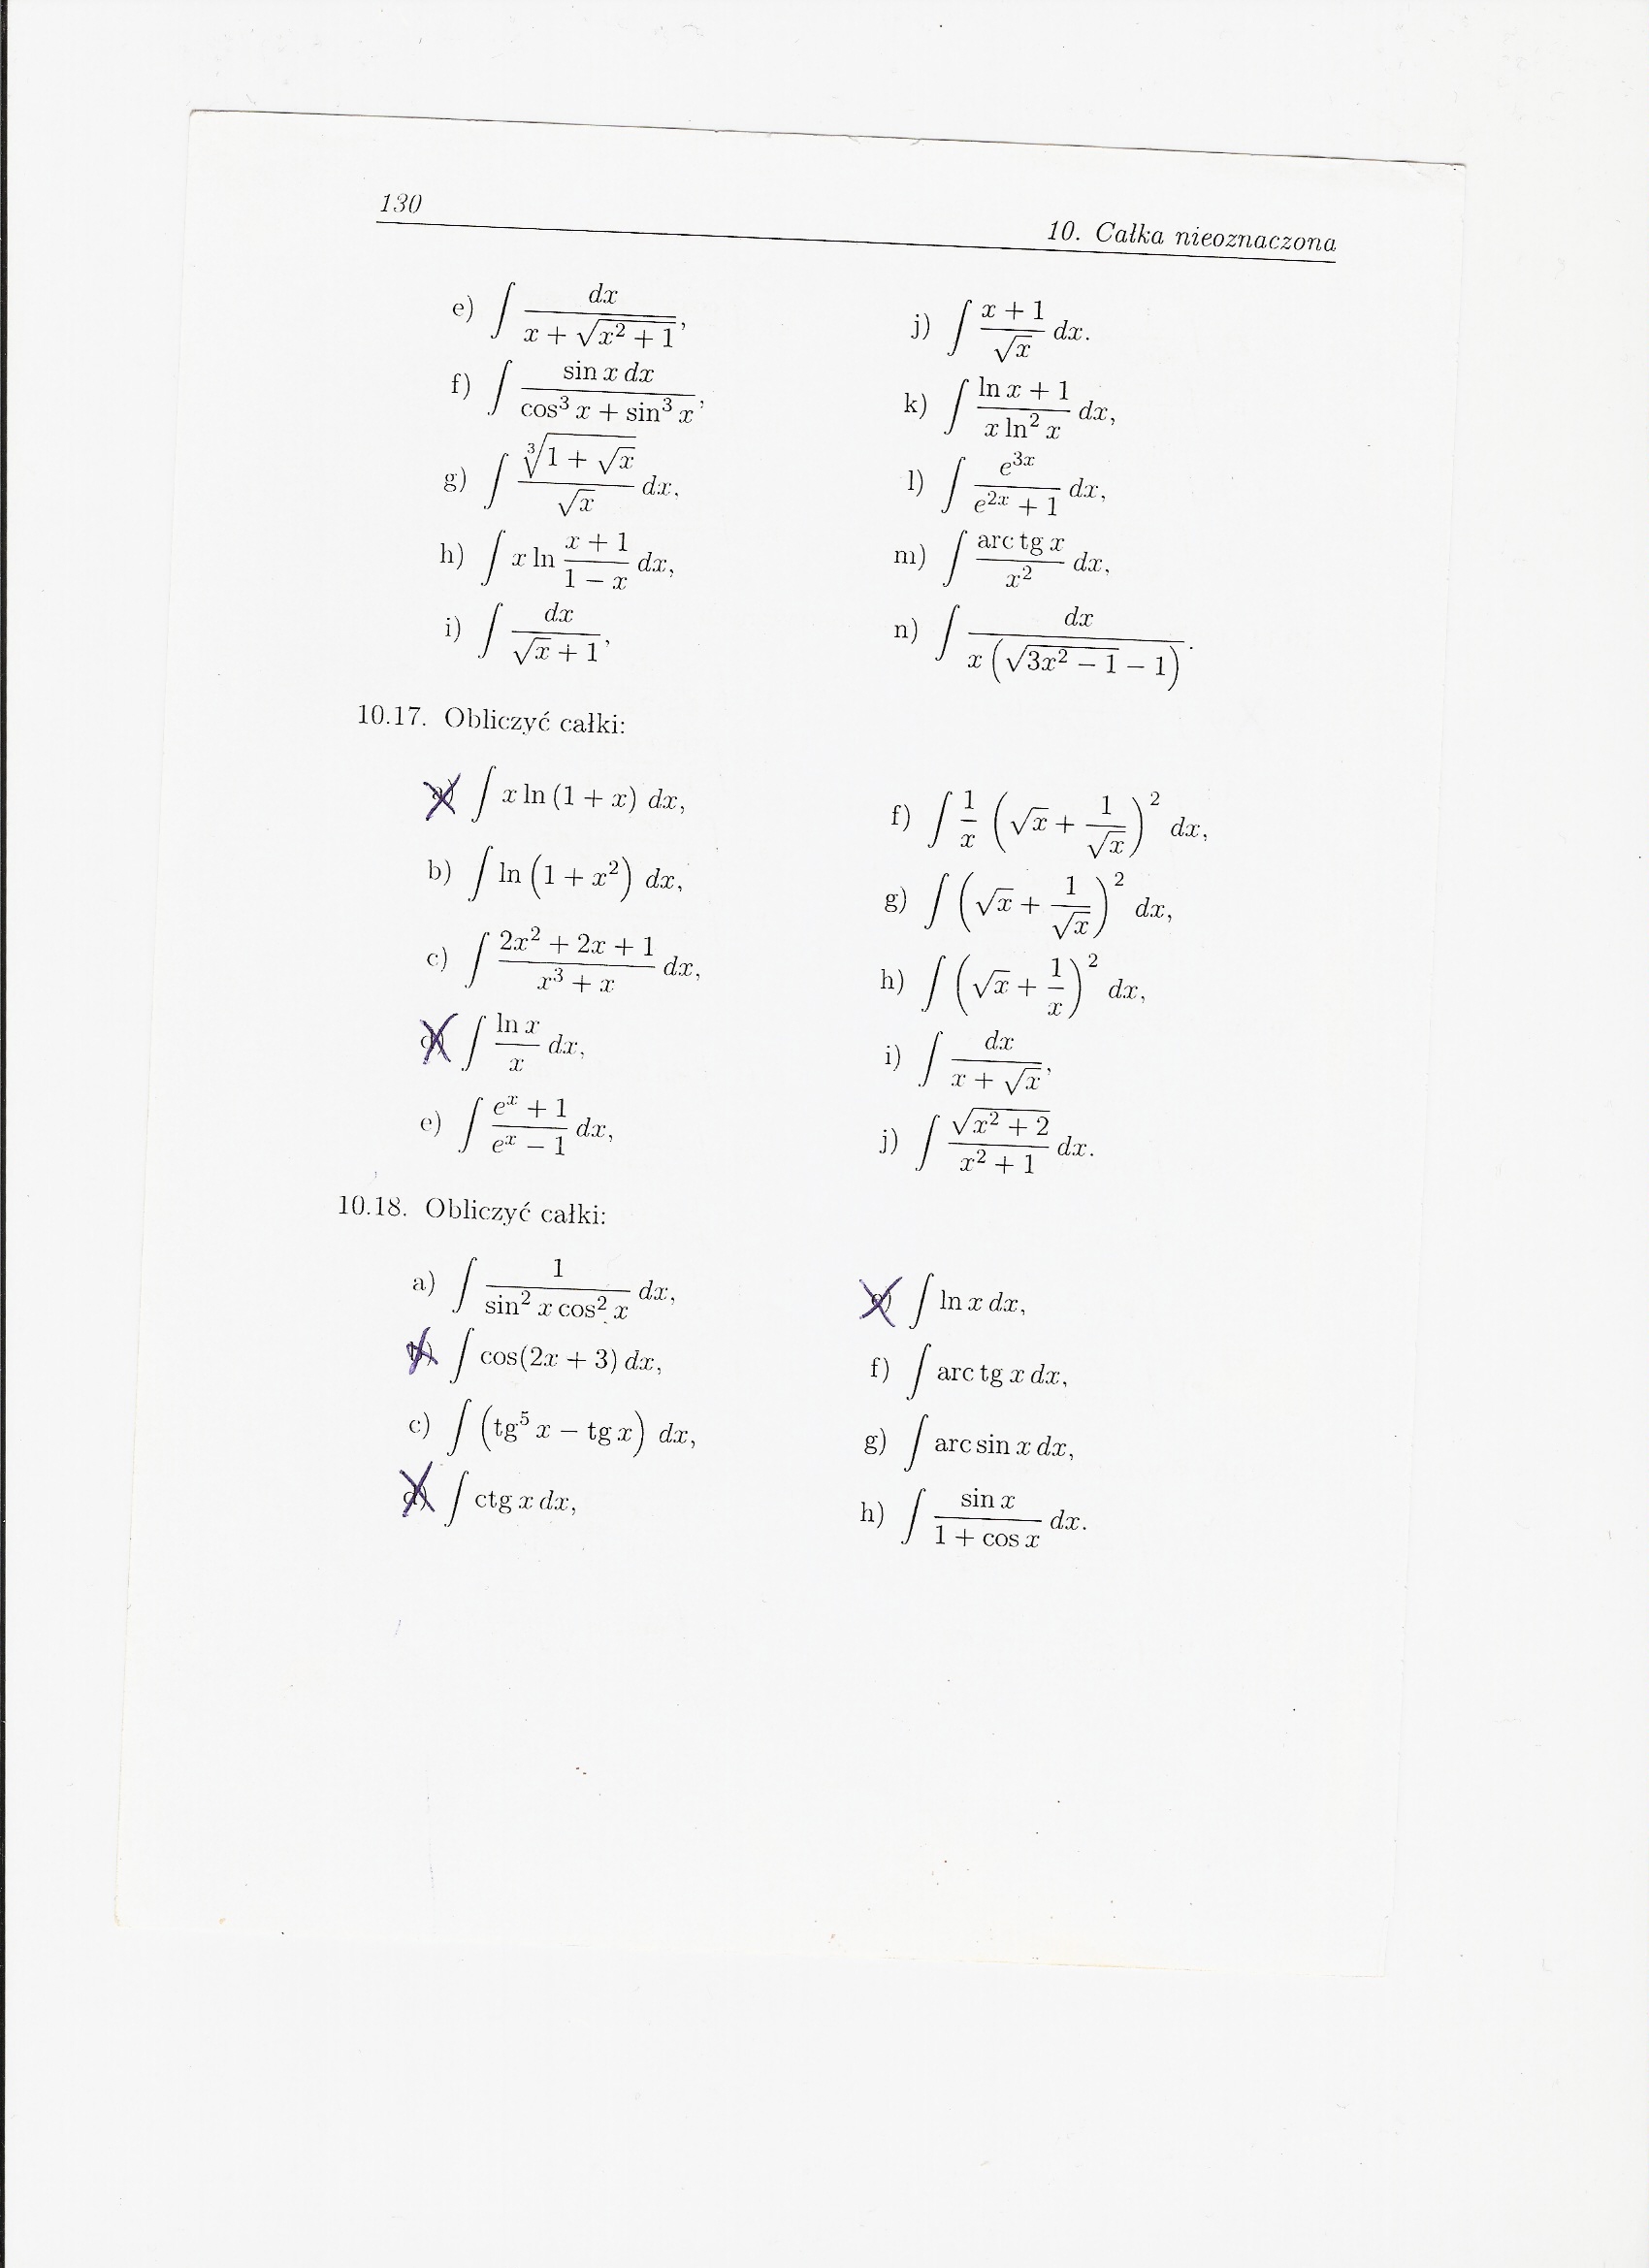 130
10. Całka nieoznaczona
e) ∫ dx / (x + √(x² + 1)),
f) ∫ sin x dx / (cos³ x + sin³ x),
g) ∫ ∛(1 + √x) / √x dx,
h) ∫ x ln (x + 1)/(1 − x) dx,
i) ∫ dx / (√x + 1),
j) ∫ (x + 1)/√x dx.
k) ∫ (ln x + 1)/(x ln² x) dx,
l) ∫ e^{3x}/(e^{2x} + 1) dx,
m) ∫ arc tg x / x² dx,
n) ∫ dx / (x (√(3x² − 1) − 1)).
10.17. Obliczyć całki:
a) ∫ x ln (1 + x) dx,
b) ∫ ln (1 + x²) dx,
c) ∫ (2x² + 2x + 1)/(x³ + x) dx,
d) ∫ ln x / x dx,
e) ∫ (e^x + 1)/(e^x − 1) dx,
f) ∫ 1/x (√x + 1/√x)² dx,
g) ∫ (√x + 1/√x)² dx,
h) ∫ (√x + 1/x)² dx,
i) ∫ dx / (x + √x),
j) ∫ √(x² + 2)/(x² + 1) dx.
10.18. Obliczyć całki:
a) ∫ 1/(sin² x cos² x) dx,
b) ∫ cos(2x + 3) dx,
c) ∫ (tg⁵ x − tg x) dx,
d) ∫ ctg x dx,
e) ∫ ln x dx,
f) ∫ arc tg x dx,
g) ∫ arc sin x dx,
h) ∫ sin x/(1 + cos x) dx.